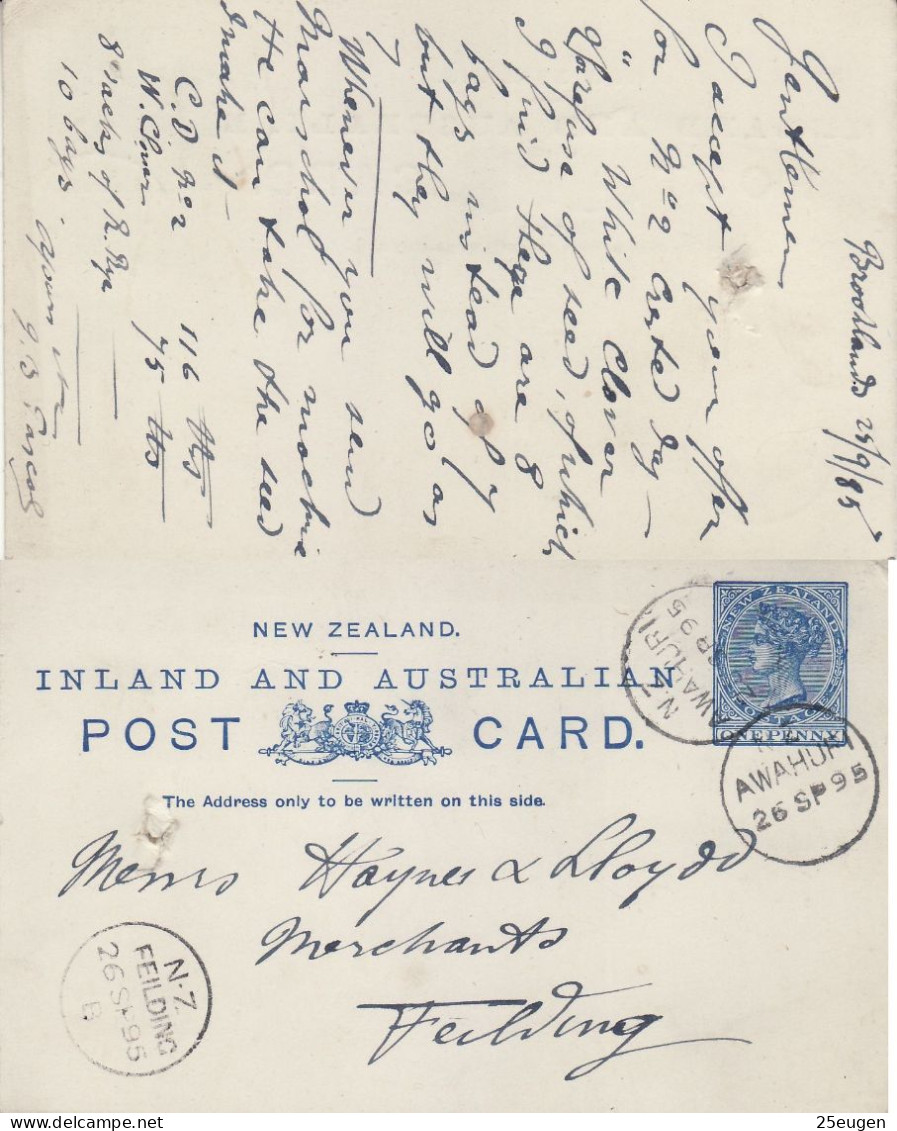 Brooklands 25/9/95
Gentlemen
I accept your offer
for No 2 Crested Dog —
" White Clover
& Refuse of seed, of which
I find there are 8
bags instead of 7
but they will go as
7
Whenever you send
Marshal for machine
He can take the seed
I make it —
C. D No 2 116 lbs
W. Clover 75 lbs
8 sacks of R. Rye
10 bags.
Yours
NEW ZEALAND.
INLAND AND AUSTRALIAN
POST CARD.
The Address only to be written on this side.
NEW ZEALAND
POSTAGE
ONE PENNY
N.Z
AWAHURI
SP 95
AWAHURI
26 SP 95
Messrs Haynes & Lloydd
Merchants
Feilding
N.Z.
FEILDING
26 SP 95
B
25eugen